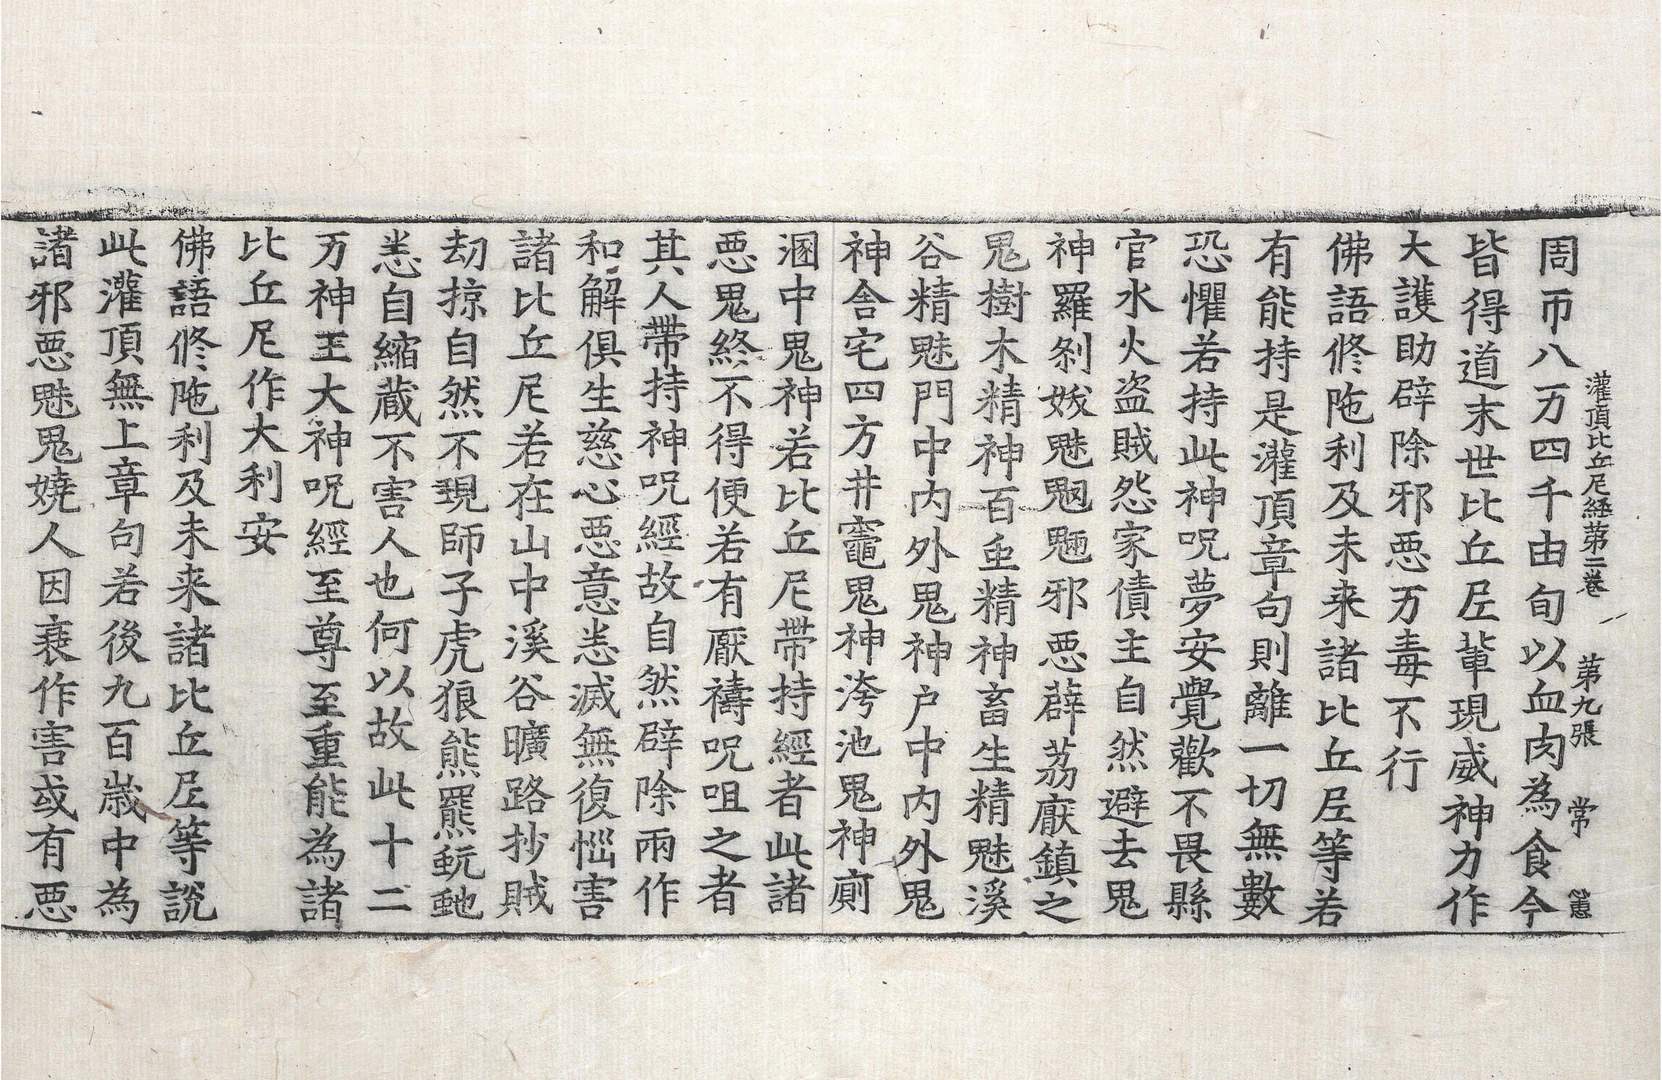 灌頂比丘尼經第二卷　第九張　常
周帀八万四千由旬以血肉為食今
皆得道末世比丘𡰱軰現威神力作
大護助辟除邪惡万毒不行
佛語修陁利及未来諸比丘𡰱等若
有能持是灌頂章句則離一切無數
恐懼若持此神呪夢安覺歡不畏縣
官水火盗賊怨家債主自然避去鬼
神羅剎妭魅魍魎邪惡薜荔厭鎮之
鬼樹木精神百虫精神畜生精魅溪
谷精魅門中內外鬼神户中內外鬼
神舎宅四方井竈鬼神洿池鬼神廁
溷中鬼神若比丘尼帶持經者此諸
惡鬼終不得便若有厭禱呪咀之者
其人帶持神呪經故自然辟除兩作
和解俱生慈心惡意恙滅無復惱害
諸比丘尼若在山中溪谷曠路抄賊
刧掠自然不現師子虎狼熊羆蚖虵
恙自縮藏不害人也何以故此十二
万神王大神呪經至尊至重能為諸
比丘尼作大利安
佛語修陁利及未来諸比丘𡰱等說
此灌頂無上章句若後九百歲中為
諸邪惡魅鬼嬈人因衰作害或有惡